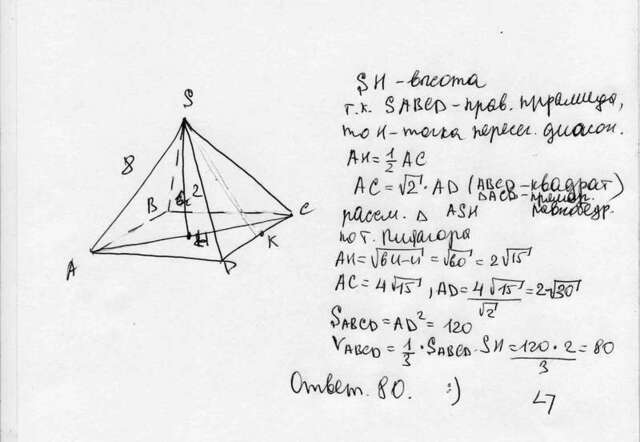 S
8
2
B
C
A
H
K
D
SH - высота
т.к. SABCD - прав. пирамида,
то H - точка пересеч. диагон.
AH = 1/2 AC
AC = √2 · AD (ABCD - квадрат)
ΔACD - прямоуг. равнобедр.
рассм. Δ ASH
по т. Пифагора
AH = √64-4 = √60 = 2√15
AC = 4√15, AD = 4√15/√2 = 2√30
SABCD = AD² = 120
VABCD = 1/3 · SABCD · SH = 120 · 2/3 = 80
Ответ. 80. :)